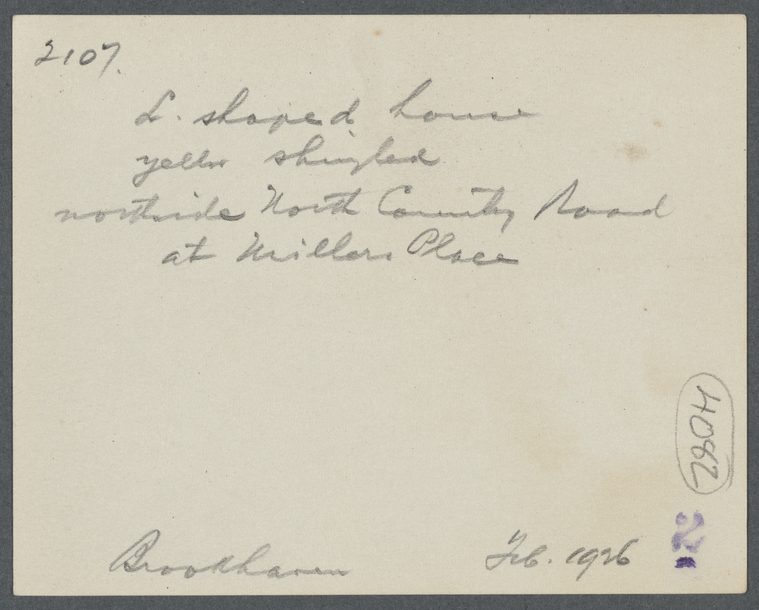 2107.
L. shaped house
yellow shingled
northside North Country Road
at Millers Place
4082
Brookhaven
Feb. 1926